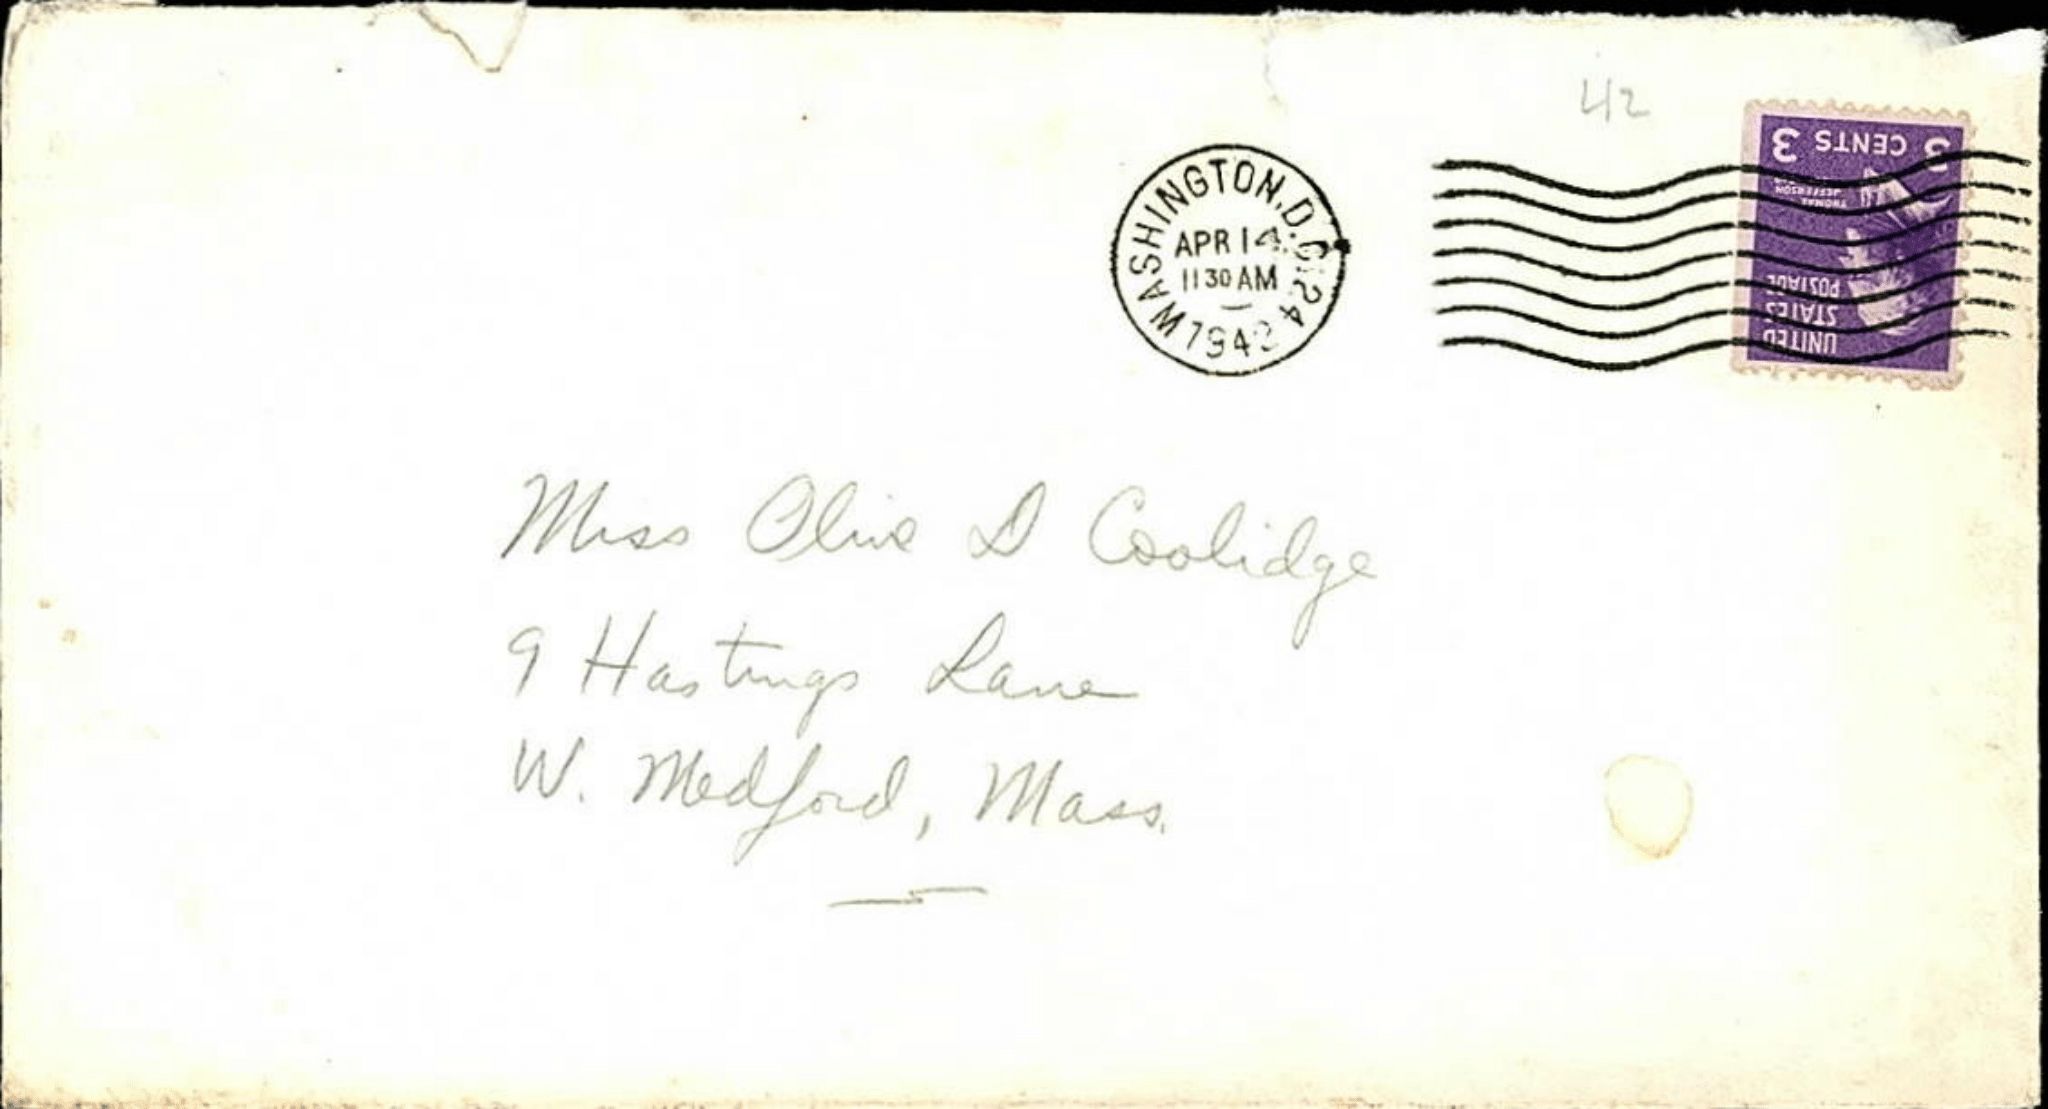 42
WASHINGTON, D.C. 24
APR 14
11 30 AM
1942
3 CENTS 3
THOMAS
JEFFERSON
UNITED
STATES
POSTAGE
Miss Olive D Coolidge
9 Hastings Lane
W. Medford, Mass.